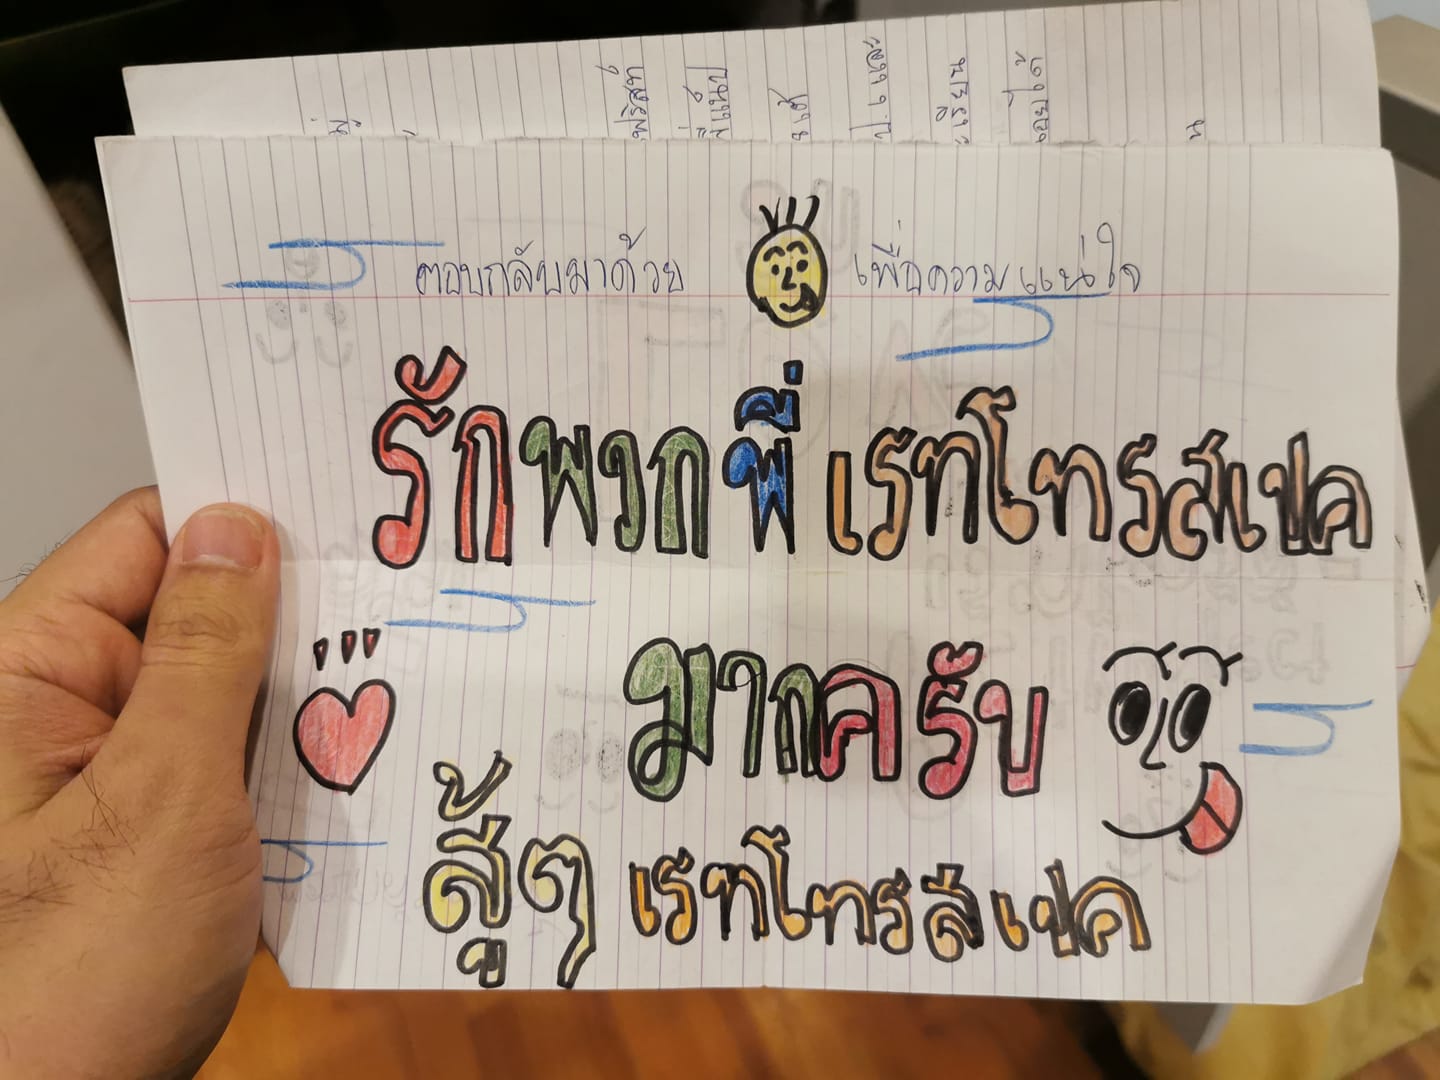 ตอบกลับมาด้วย เพื่อความแน่ใจ
รักพวกพี่เรทโทรสเปค
มากครับ
สู้ๆ เรทโทรสเปค